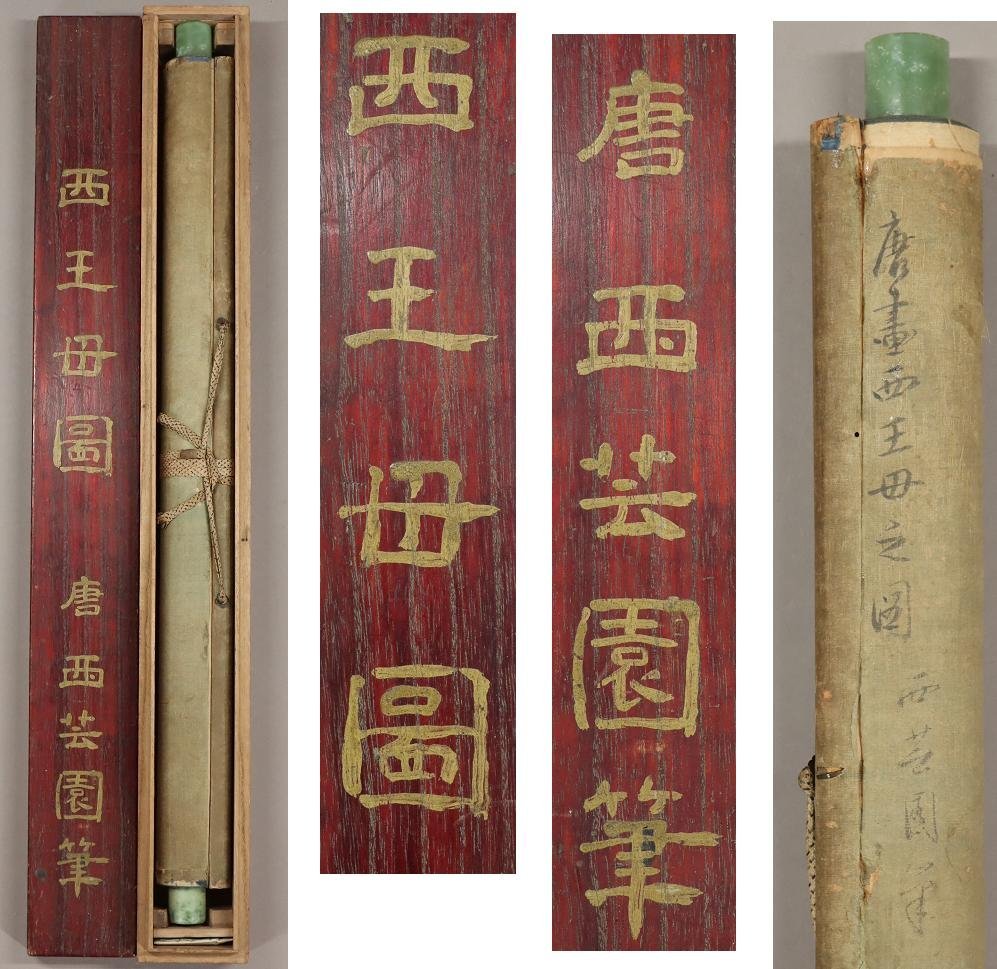 西王母圖
唐西芸園筆
西王母圖
唐西芸園筆
唐畫西王母之圖
西芸園筆